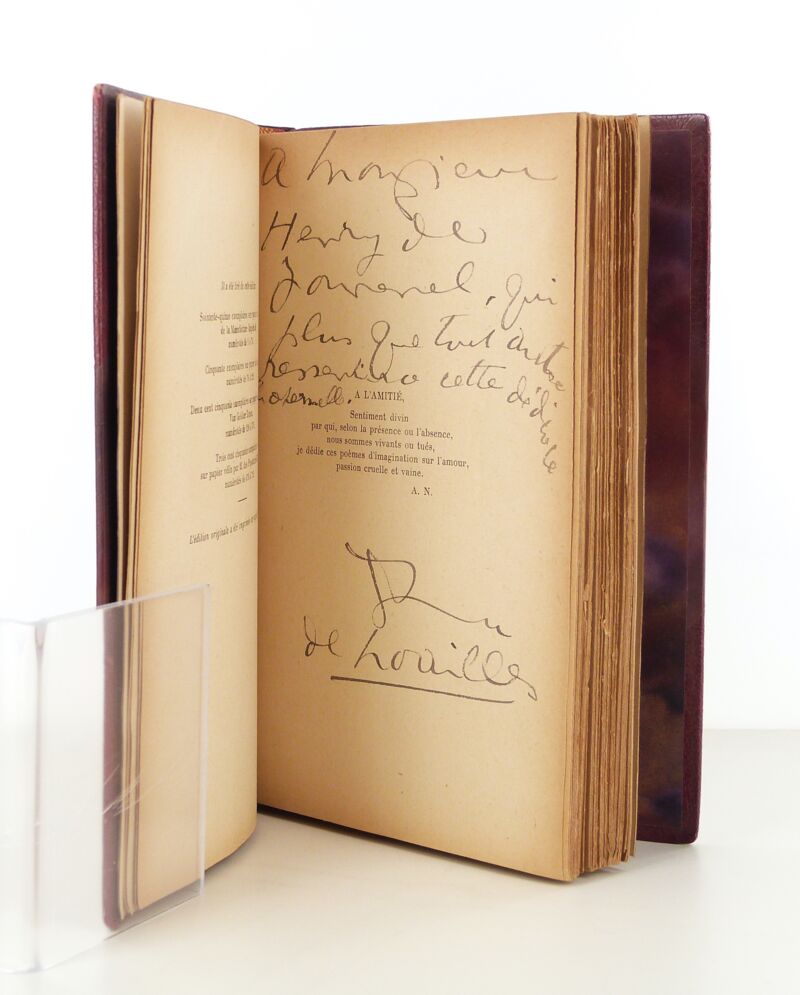 Il a été tiré de cette édition
Soixante-quinze exemplaires sur
de la Manufacture
numérotés de 1 à 75.
Cinquante exemplaires sur
numérotés de
Deux cent cinquante exemplaires sur
Van Gelder Zonen,
numérotés de 126 à 375.
Trois cent cinquante exemplaires
sur papier vélin pur fil des
numérotés de
L'édition originale a été imprimée
A Monsieur
Henry de
Jouvenel, qui
plus que tout autre
ressentira cette dédicace
fraternelle.
A L'AMITIÉ,
Sentiment divin
par qui, selon la présence ou l'absence,
nous sommes vivants ou tués,
je dédie ces poèmes d'imagination sur l'amour,
passion cruelle et vaine.
A. N.
Anna
de Noailles